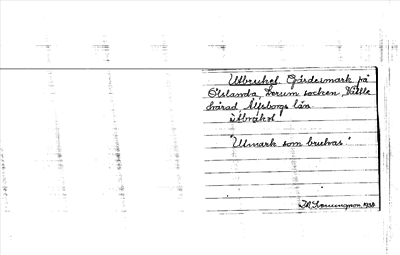 Utbruket. Gärdesmark på
Ölslanda, Lerum socken, Vättle
härad, Älfsborgs län
ùtbråket
"Utmark som brukas"
1938